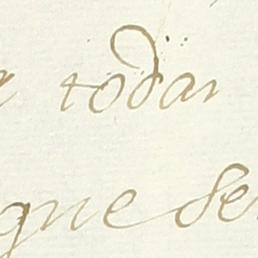 todas
que se